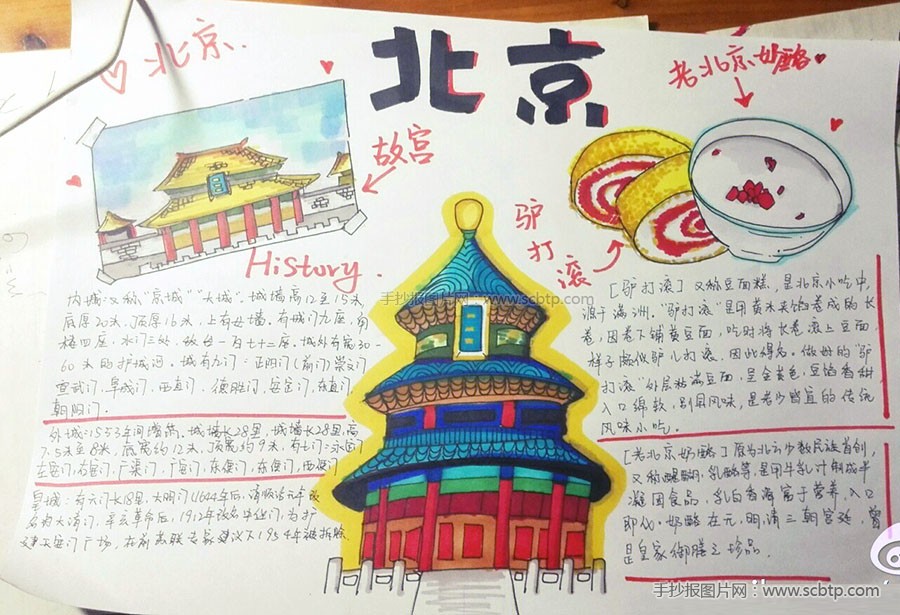 北京
北京.
故宫
老北京奶酪
驴打滚
History.
手抄报图片网:www.scbtp.com
内城:又称"京城""大城". 城墙高12至15米,
底厚20米、顶厚16米,上有女墙。有城门九座,角
楼四座,水门三处,敌台一百七十二座,城外有宽30-
60米的护城河。城有九门:正阳门(前门)崇文门
宣武门、阜成门、西直门、德胜门、安定门、东直门、
朝阳门。
外城:1553年间增筑,城墙长28里,城墙长28里,高
7.5米至8米,底宽约12米,顶宽约9米,有七门:永定门
左安门、右安门、广渠门、广宁门、东便门、西便门
皇城:有六门长18里,大明门(1644年后,清顺治元年改
名为大清门,辛亥革命后,1912年改名中华门,为扩
建天安门广场,在前苏联专家建议下1954年被拆除
[驴打滚] 又称豆面糕,是北京小吃中,
源于满洲。"驴打滚"是用黄米夹馅卷成的长
卷,因卷下铺黄豆面,吃时将长卷滚上豆面,
样子颇似驴儿打滚,因此得名。做好的"驴
打滚"外层粘满豆面,呈金黄色,豆馅香甜
入口绵软,别具风味,是老少皆宜的传统
风味小吃.
[老北京奶酪] 原为北方少数民族首创,
又称醍醐,乳酪等,是用牛乳汁制成半
凝固食品,乳白香滑富于营养,入口
即化,奶酪在元,明,清三朝宫廷,曾
是皇家御膳之珍品.
手抄报图片网:www.scbtp.com